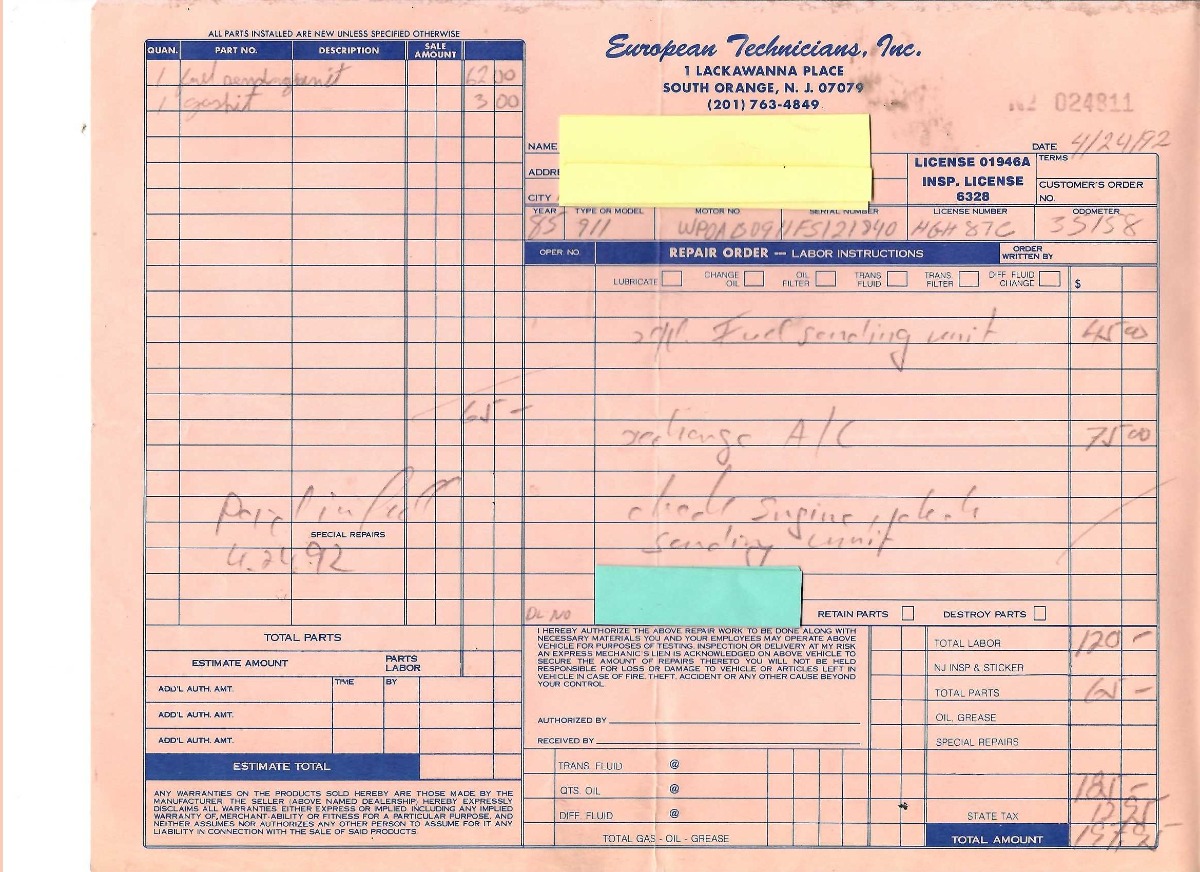 ALL PARTS INSTALLED ARE NEW UNLESS SPECIFIED OTHERWISE
QUAN. PART NO. DESCRIPTION SALE AMOUNT
1 fuel sending unit 62 00
1 3 00
65 -
Paid in full
SPECIAL REPAIRS
4.24.92
TOTAL PARTS
ESTIMATE AMOUNT PARTS LABOR
ADD'L AUTH. AMT. TIME BY
ADD'L AUTH. AMT.
ADD'L AUTH. AMT.
ESTIMATE TOTAL
ANY WARRANTIES ON THE PRODUCTS SOLD HEREBY ARE THOSE MADE BY THE
MANUFACTURER. THE SELLER (ABOVE NAMED DEALERSHIP) HEREBY EXPRESSLY
DISCLAIMS ALL WARRANTIES EITHER EXPRESS OR IMPLIED INCLUDING ANY IMPLIED
WARRANTY OF MERCHANT-ABILITY OR FITNESS FOR A PARTICULAR PURPOSE, AND
NEITHER ASSUMES NOR AUTHORIZES ANY OTHER PERSON TO ASSUME FOR IT ANY
LIABILITY IN CONNECTION WITH THE SALE OF SAID PRODUCTS.
European Technicians, Inc.
1 LACKAWANNA PLACE
SOUTH ORANGE, N. J. 07079
(201) 763-4849
024811
NAME DATE 4/24/92
ADDRE LICENSE 01946A TERMS
INSP. LICENSE 6328
CITY CUSTOMER'S ORDER NO.
YEAR TYPE OR MODEL MOTOR NO SERIAL NUMBER LICENSE NUMBER ODOMETER
85 911 WP0AB0911FS121840 HGH 87C 35158
OPER NO. REPAIR ORDER — LABOR INSTRUCTIONS ORDER WRITTEN BY
LUBRICATE CHANGE OIL OIL FILTER TRANS FLUID TRANS. FILTER DIFF FLUID CHANGE $
Fuel sending unit 45 00
A/C 75 00
check engine
sending unit
DL NO
RETAIN PARTS DESTROY PARTS
I HEREBY AUTHORIZE THE ABOVE REPAIR WORK TO BE DONE ALONG WITH
NECESSARY MATERIALS YOU AND YOUR EMPLOYEES MAY OPERATE ABOVE
VEHICLE FOR PURPOSES OF TESTING, INSPECTION OR DELIVERY AT MY RISK
AN EXPRESS MECHANIC'S LIEN IS ACKNOWLEDGED ON ABOVE VEHICLE TO
SECURE THE AMOUNT OF REPAIRS THERETO YOU WILL NOT BE HELD
RESPONSIBLE FOR LOSS OR DAMAGE TO VEHICLE OR ARTICLES LEFT IN
VEHICLE IN CASE OF FIRE, THEFT, ACCIDENT OR ANY OTHER CAUSE BEYOND
YOUR CONTROL.
AUTHORIZED BY
RECEIVED BY
TOTAL LABOR 120 -
NJ INSP & STICKER
TOTAL PARTS 65 -
OIL, GREASE
SPECIAL REPAIRS
TRANS. FLUID @
QTS. OIL @ 185 -
DIFF. FLUID @ STATE TAX 12 95
TOTAL GAS - OIL - GREASE TOTAL AMOUNT 197.95